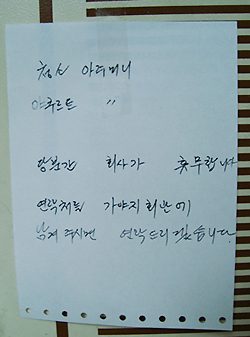 청소 아주머니
야쿠르트 〃
당분간 회사가 휴무합니다
연락처를 가야지 회반에
남겨 주시면 연락드리겠습니다.